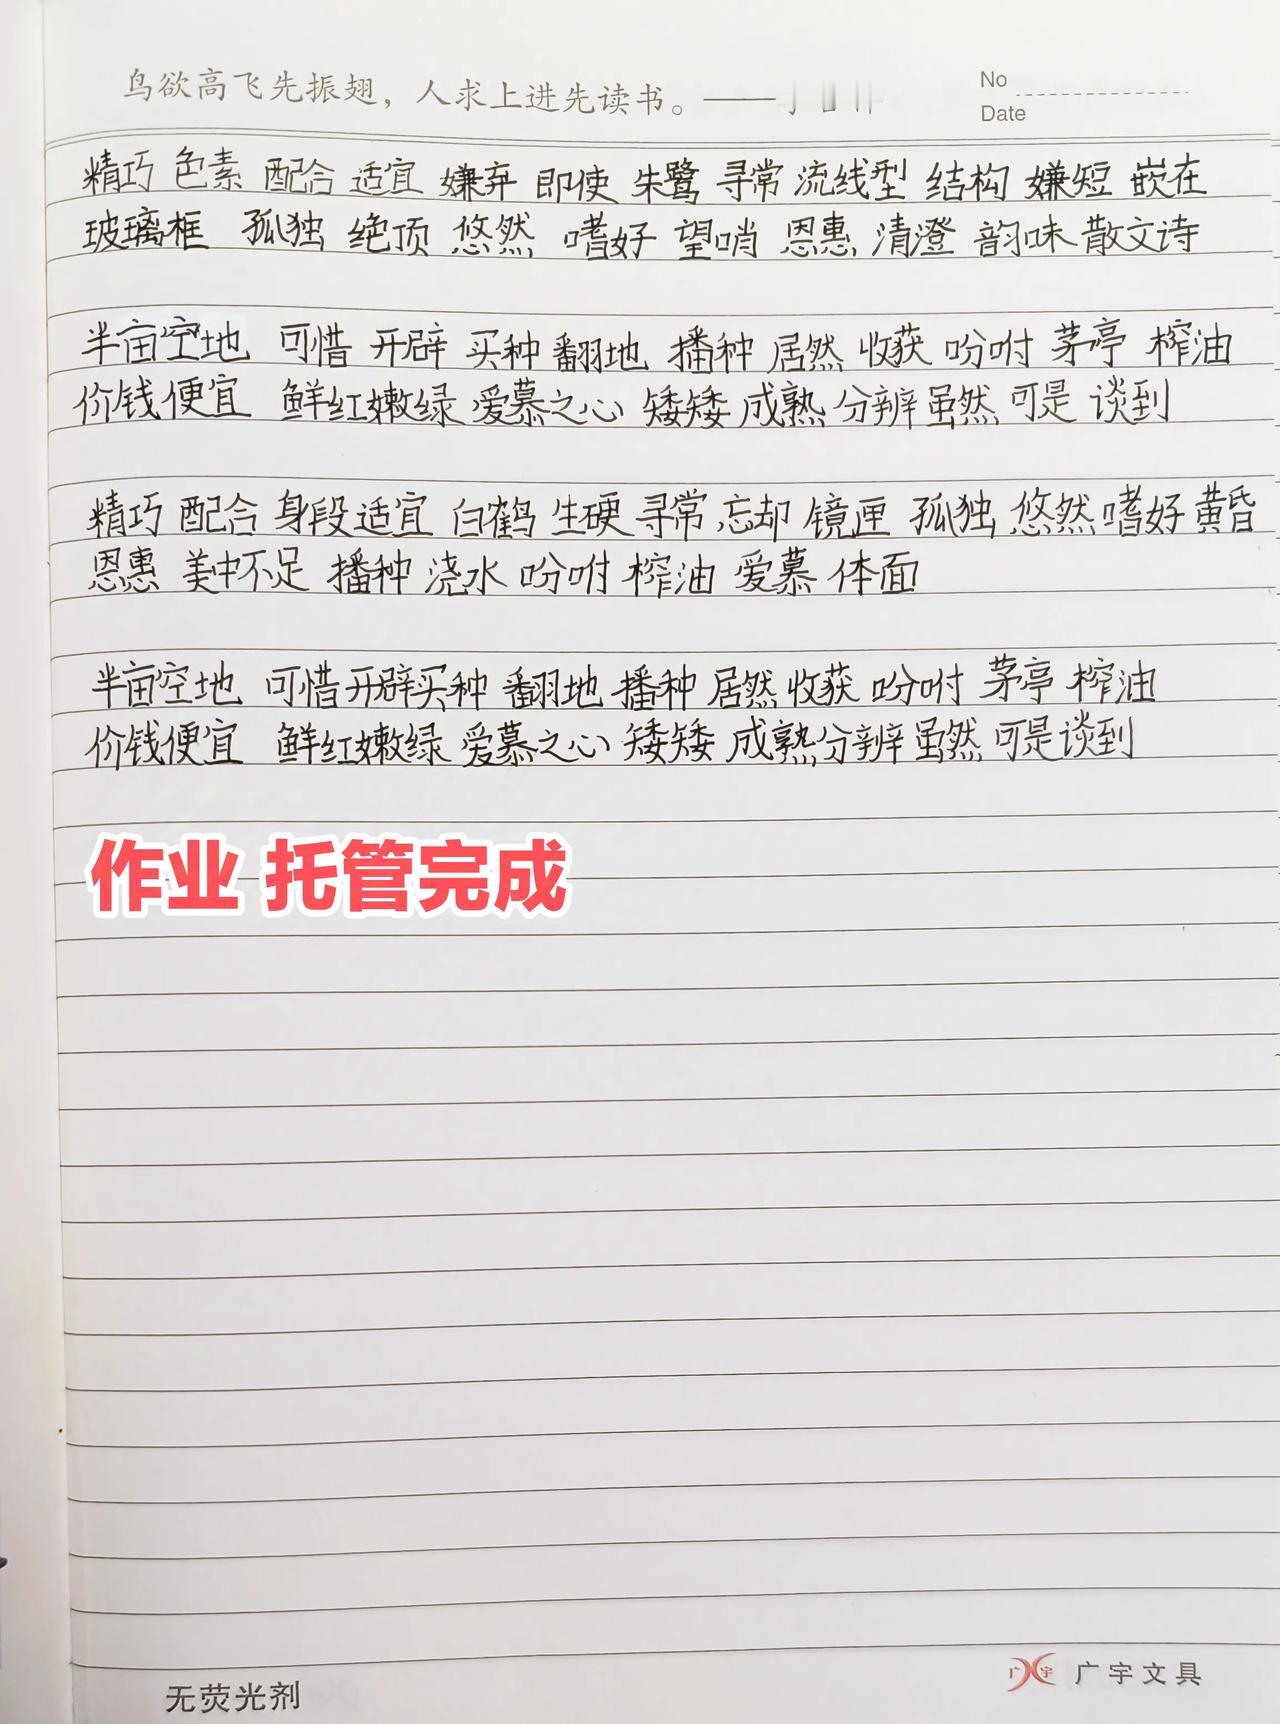 鸟欲高飞先振翅，人求上进先读书。——
No
Date
精巧 色素 配合 适宜 嫌弃 即使 朱鹭 寻常 流线型 结构 嫌短 嵌在
玻璃框 孤独 绝顶 悠然 嗜好 望哨 恩惠 清澄 韵味 散文诗
半亩空地 可惜 开辟 买种 翻地 播种 居然 收获 吩咐 茅亭 榨油
价钱便宜 鲜红嫩绿 爱慕之心 矮矮 成熟 分辨 虽然 可是 谈到
精巧 配合 身段 适宜 白鹤 生硬 寻常 忘却 镜匣 孤独 悠然 嗜好 黄昏
恩惠 美中不足 播种 浇水 吩咐 榨油 爱慕 体面
半亩空地 可惜 开辟 买种 翻地 播种 居然 收获 吩咐 茅亭 榨油
价钱便宜 鲜红嫩绿 爱慕之心 矮矮 成熟 分辨 虽然 可是 谈到
作业 托管完成
无荧光剂
广宇 广宇文具